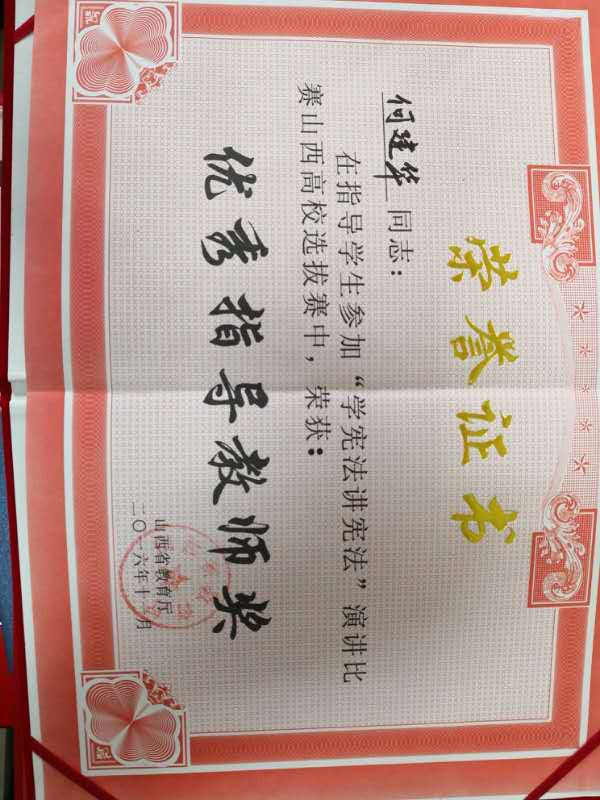 荣誉证书
何建华同志：
在指导学生参加“学宪法讲宪法”演讲比
赛山西高校选拔赛中，荣获：
优秀指导教师奖
山西省教育厅
二〇一六年十月